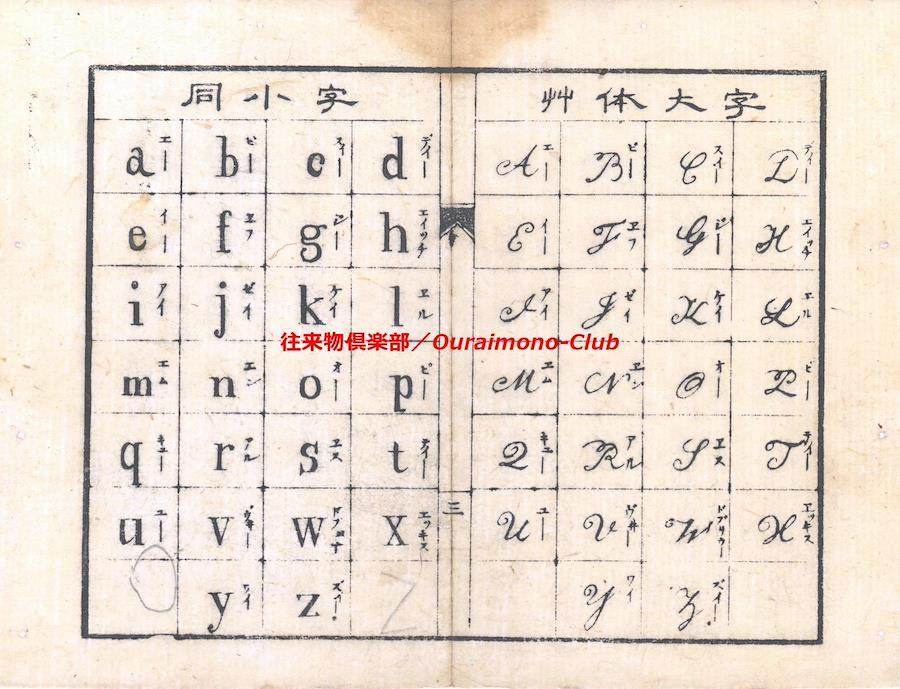 同小字
艸体大字
a エー b ビー c スィー d ディー
e イー f エフ g ジー h エイッチ
i アイ j ゼイ k ケイ l エル
m エム n エン o オー p ピー
q キュー r アル s エス t ティー
u ユー v ヴヰー w x エッキス
y ワイ z
A エー B ビー C スイー D ディー
E イー F エフ G ジー H エイッチ
I アイ J ゼイ K ケイ L エル
M エム N エン O オー P ピー
Q キュー R アル S エス T ティー
U ユー V ヴヰー W X エッキス
Y ワイ Z ズイー.
三
往来物倶楽部／Ouraimono-Club